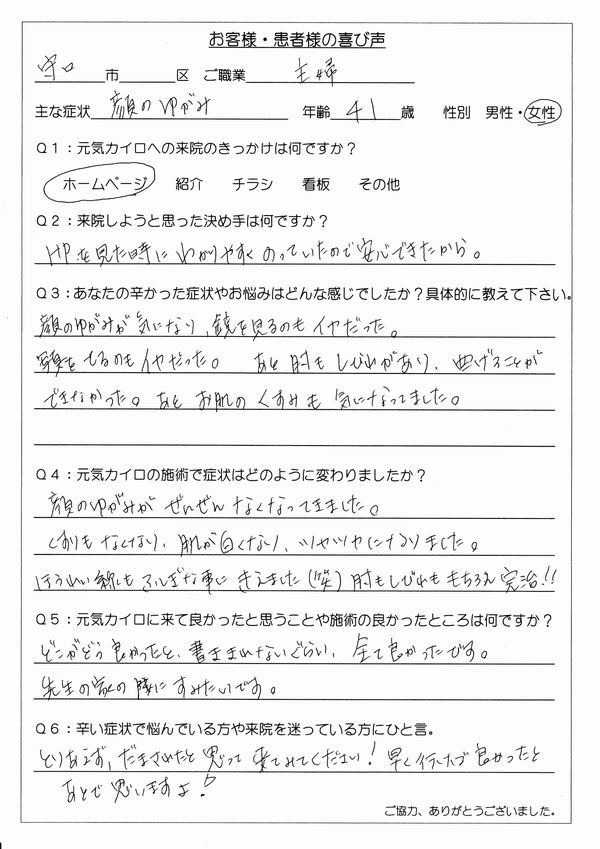 お客様・患者様の喜び声
守口 市 区 ご職業 主婦
主な症状 顔のゆがみ 年齢 41 歳 性別 男性・女性
Q1：元気カイロへの来院のきっかけは何ですか？
ホームページ 紹介 チラシ 看板 その他
Q2：来院しようと思った決め手は何ですか？
HPを見た時にわかりやすくのっていたので安心できたから。
Q3：あなたの辛かった症状やお悩みはどんな感じでしたか？具体的に教えて下さい。
顔のゆがみが気になり、鏡を見るのもイヤだった。
写真をとるのもイヤだった。 あと肘もしびれがあり、曲げることが
できなかった。あと お肌のくすみも 気になってました。
Q4：元気カイロの施術で症状はどのように変わりましたか？
顔のゆがみが ぜんぜん なくなってきました。
くすりもなくなり、肌が白くなり、ツヤツヤになりました。
ほうれい線もふしぎな事にきえました(笑)肘もしびれももちろん完治!!
Q5：元気カイロに来て良かったと思うことや施術の良かったところは何ですか？
どこがどう良かったと、書ききれないぐらい、全て良かったです。
先生の家の隣にすみたいです。
Q6：辛い症状で悩んでいる方や来院を迷っている方にひと言。
とりあえず、だまされたと思って来てみてください！早く行けば良かったと
あとで思いますよ！
ご協力、ありがとうございました。